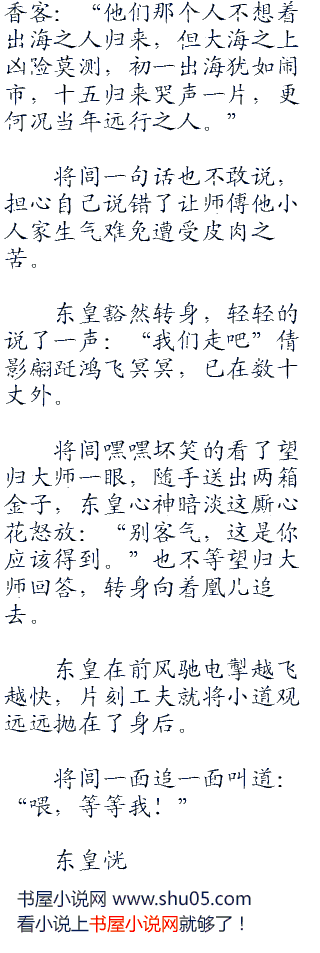 香客：“他们那个人不想着
出海之人归来，但大海之上
凶险莫测，初一出海犹如闹
市，十五归来哭声一片，更
何况当年远行之人。”
将闾一句话也不敢说，
担心自己说错了让师傅他小
人家生气难免遭受皮肉之
苦。
东皇豁然转身，轻轻的
说了一声：“我们走吧”倩
影翩跹鸿飞冥冥，已在数十
丈外。
将闾嘿嘿坏笑的看了望
归大师一眼，随手送出两箱
金子，东皇心神暗淡这厮心
花怒放：“别客气，这是你
应该得到。”也不等望归大
师回答，转身向着凰儿追
去。
东皇在前风驰电掣越飞
越快，片刻工夫就将小道观
远远抛在了身后。
将闾一面追一面叫道：
“喂，等等我！”
东皇恍
书屋小说网 www.shu05.com
看小说上书屋小说网就够了！